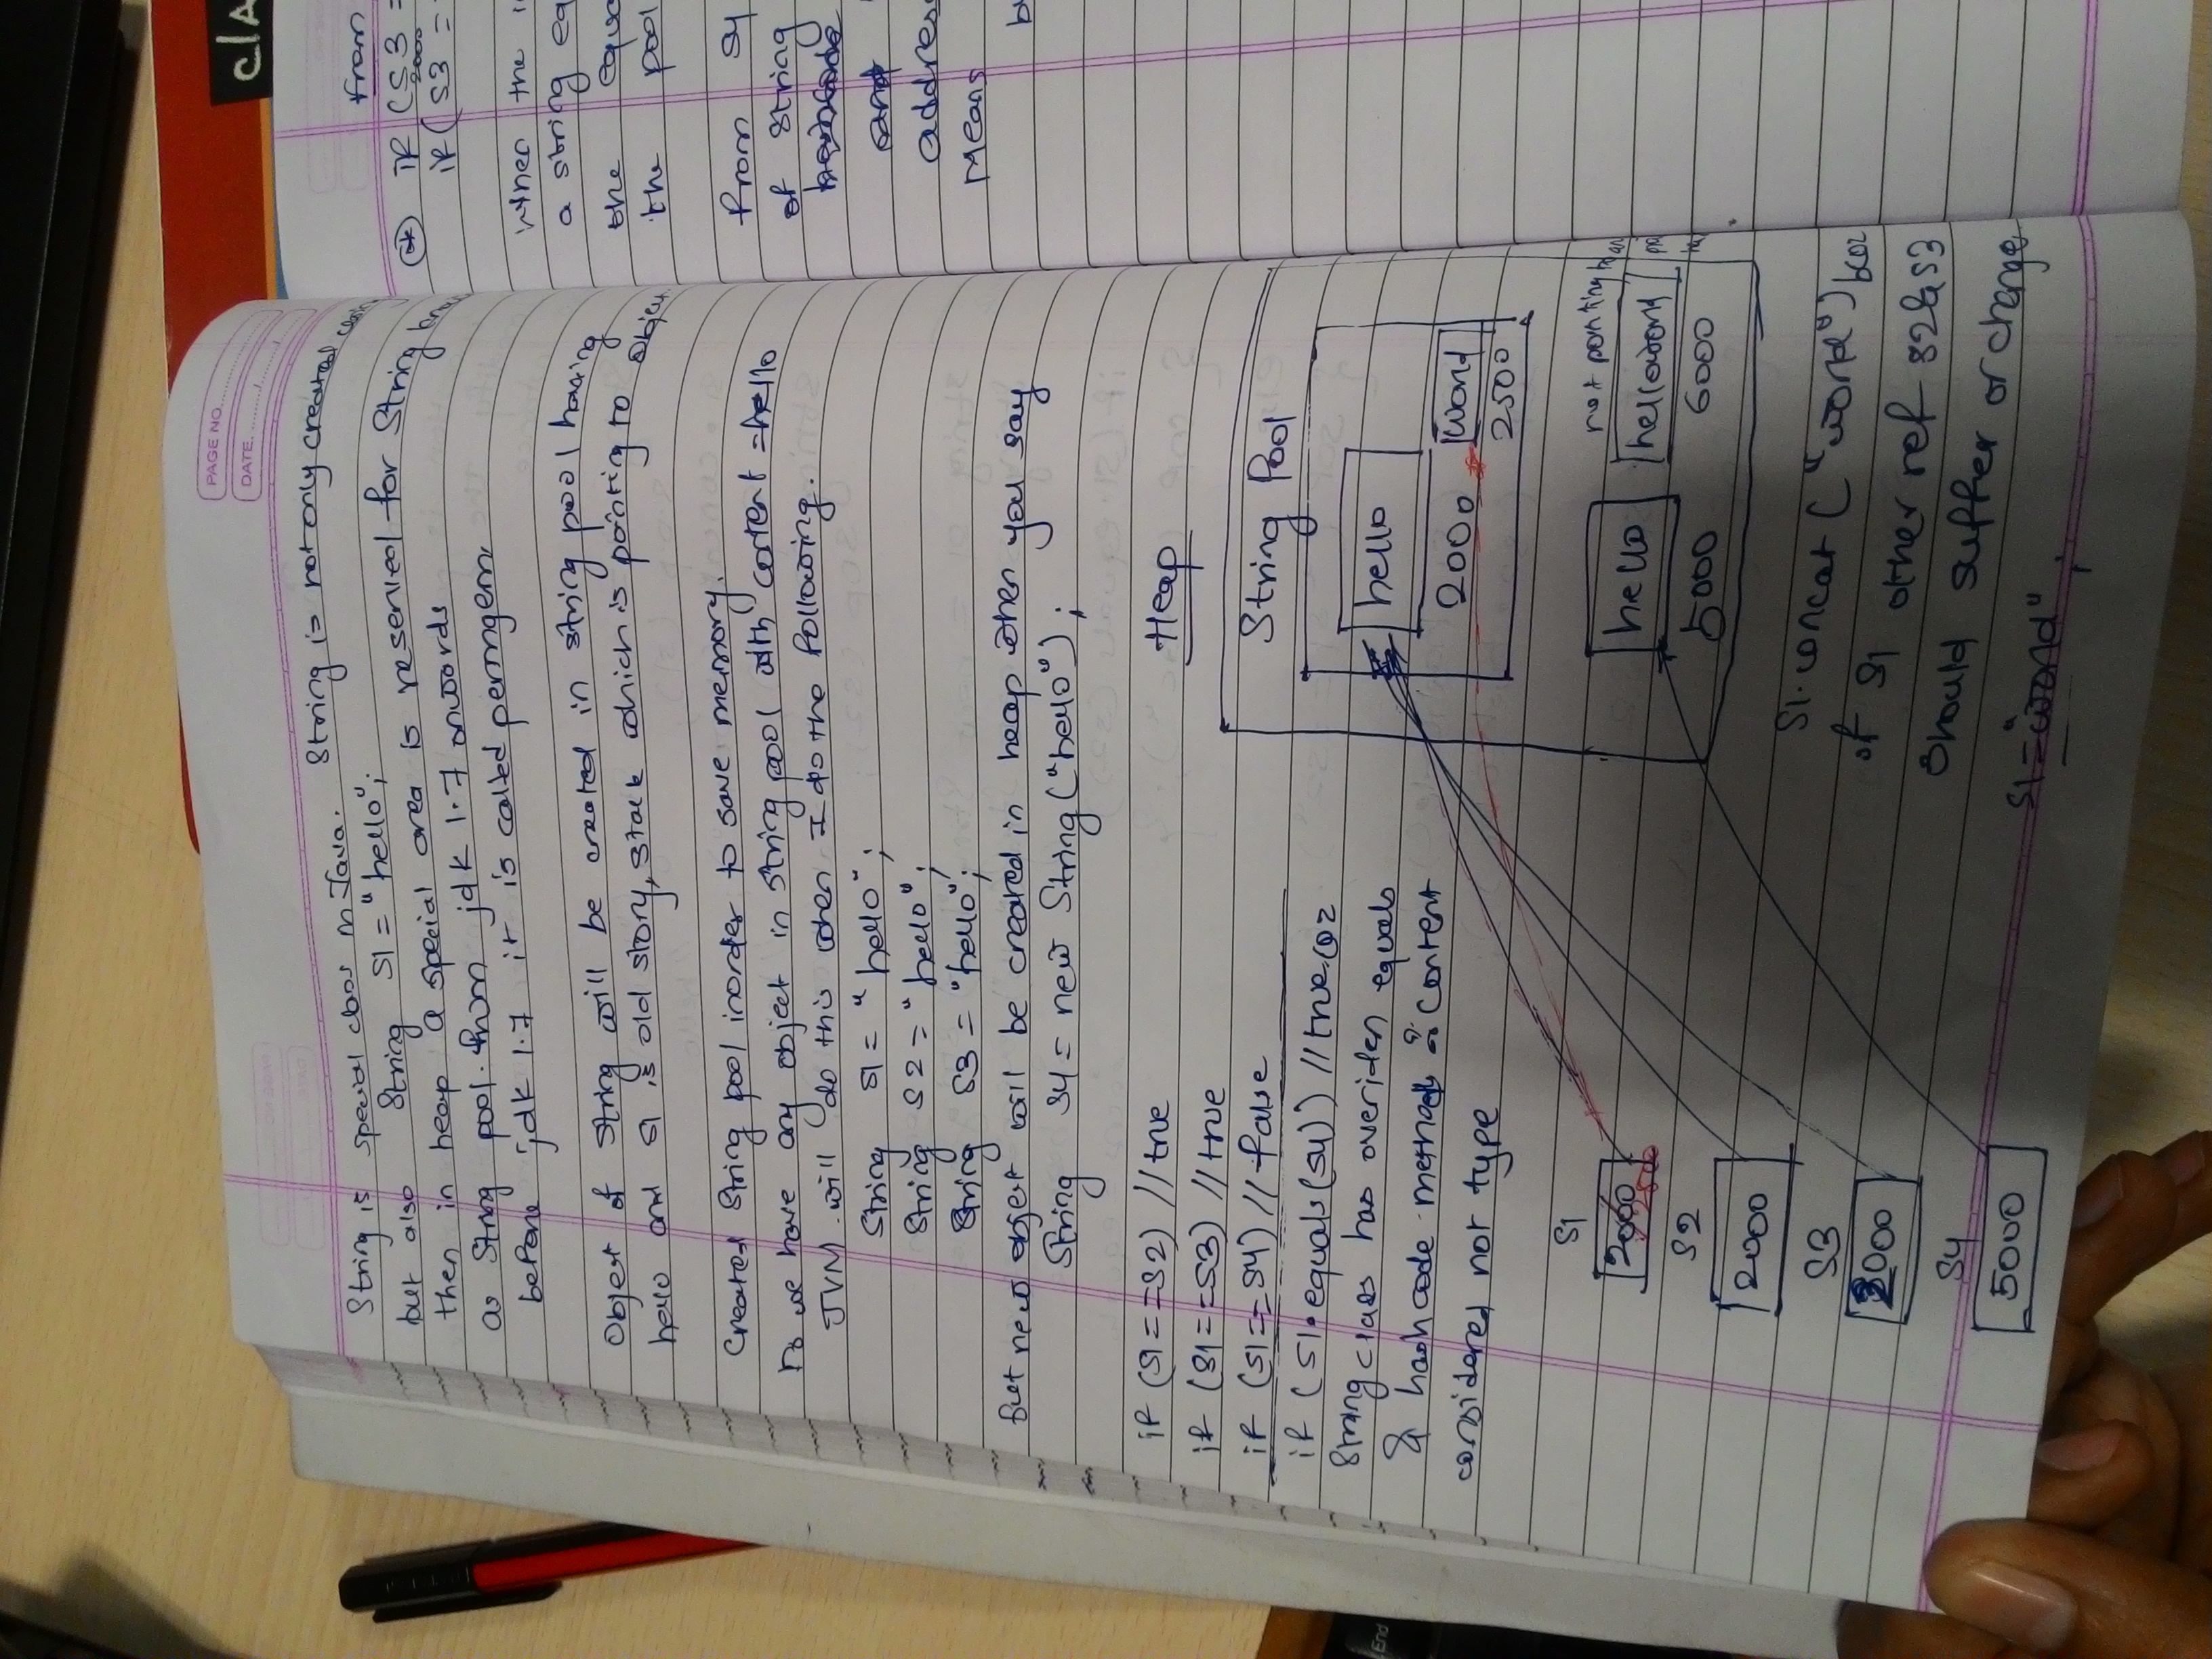 PAGE NO.
DATE.
String is special class in Java. String is not only created
but also String S1 = "hello";
then in heap a special area is reserved for String
as String pool. from jdk 1.7 onwords
before jdk 1.7 it is called permgem
Object of string will be created in string pool having
hello and S1 is old story, stack which is pointing to Object
Created String pool inorder to save memory.
Do we have any object in string pool with content = hello
JVM will do this when I do the following.
String S1 = "hello";
String S2 = "hello";
String S3 = "hello";
But new object will be created in heap when you say
String S4 = new String("hello");
if (S1 == S2) //true
if (S1 == S3) //true
if (S1 == S4) //false
if (S1.equals(S4)) //true coz
String class has overiden equals
& hashcode methods content
considered not type
Heap
String Pool
hello
2000
word
2500
hello
5000
not pointing to
helloword
6000
S1
2000
2500
S2
2000
S3
2000
S4
5000
S1.concat("word") bcoz
of S1 other ref S2 & S3
Should suffer or change
S1 = "word";
from
if (S3 =
2000
if (S3 =
when the
a string
the
the pool
from S4
of String
and
address
Means
cla
End